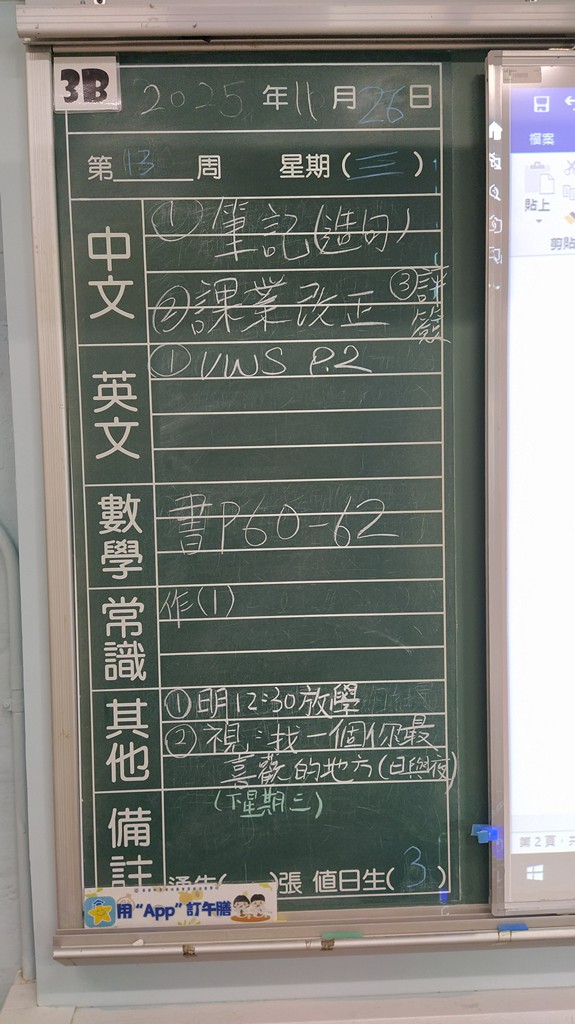 3B
2025年11月26日
第13周 星期(三)
中文
① 筆記(造句)
② 課業改正 ③ 評簽
英文
① VWS P.2
數學
書P60-62
常識
作(1)
其他
① 明12:30放學
② 視：找一個你最
喜歡的地方(日與夜)
(下星期三)
備註
通告( )張 值日生(3)
用“App”訂午膳
檔案
貼上
剪貼
第2頁，共